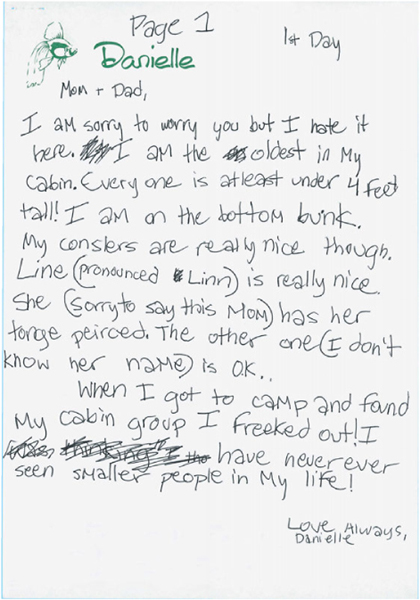 Page 1
1st Day
Danielle
Mom + Dad,
I am sorry to worry you but I hate it
here. I am the oldest in my
cabin. Every one is atleast under 4 feet
tall! I am on the bottom bunk.
My conslers are really nice though.
Line (pronounced Linn) is really nice.
She (sorry to say this Mom) has her
tonge peirced. The other one (I don't
know her name) is O.K..
When I got to camp and found
My cabin group I freeked out! I
have never ever
seen smaller people in My life!
Love Always,
Danielle